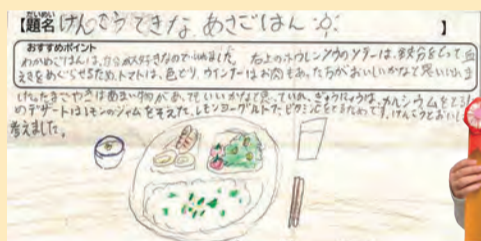 だいめい
【題名 けんこうてきな あさごはん 】
おすすめポイント
わかめごはんは、 大好きなので ました。右上のホウレンソウのソテーは、鉄分をとって血
えきをめぐらせるため、トマトは、色どり、ウインナーはお肉もあった方がおいしいかなと思い いれま
した。たまごやきはあまい物があ いいかなと思 ぎゅうにゅうは、カルシウムをとるた
めデザートはレモンのジャムをそえた、レモンヨーグルトで、ビタミンCをとるため けんこうとおいし
考えました。